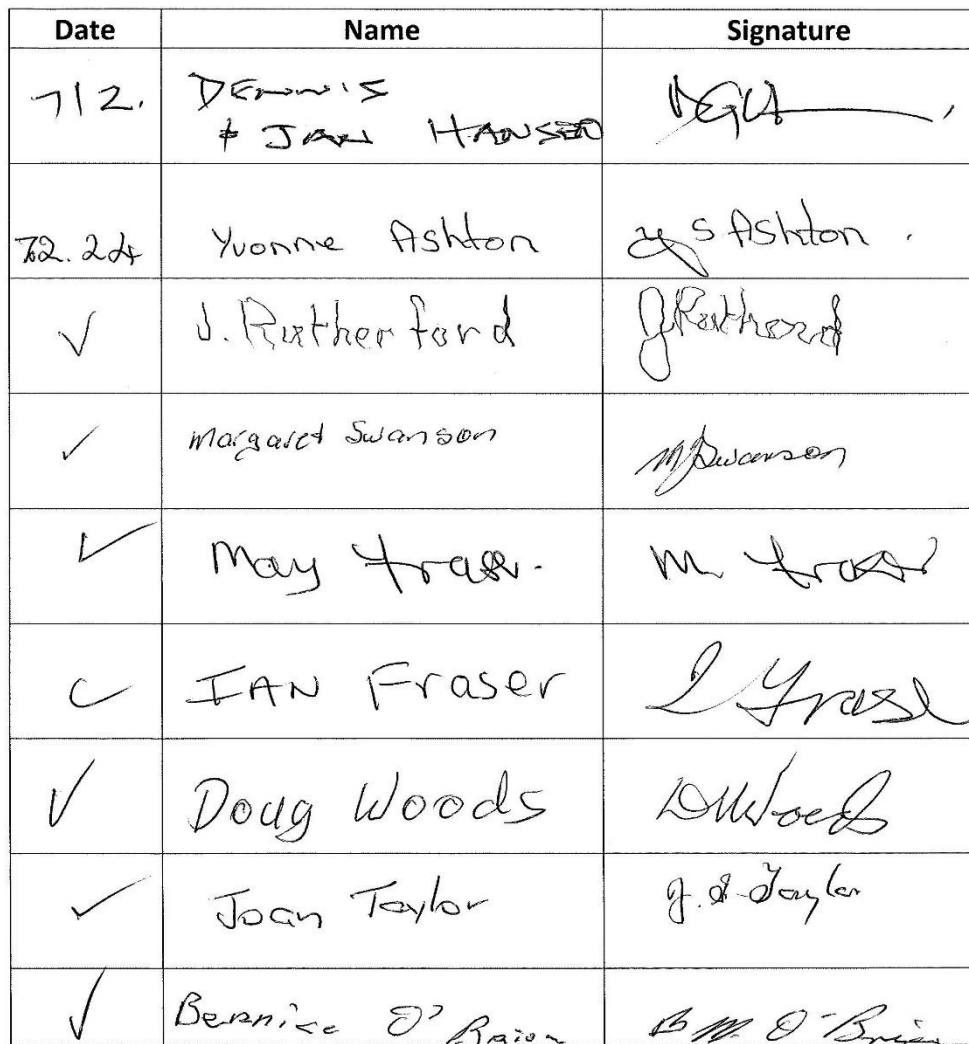 Date Name Signature
7/2. DENNIS
& JAN HANSEN
7.2.24 Yvonne Ashton Y S Ashton.
✓ J. Rutherford J Rutherford
✓ Margaret Swanson M J Swanson
✓ May Fraser. M Fraser
✓ IAN Fraser I Fraser
✓ Doug Woods D Woods
✓ Joan Taylor J. S. Taylor
✓ Bernice O'Brien B M O'Brien